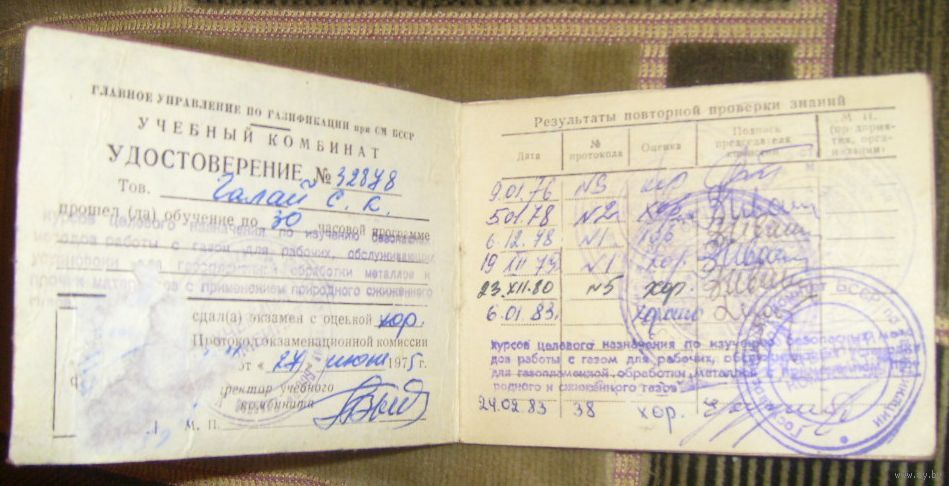 ГЛАВНОЕ УПРАВЛЕНИЕ ПО ГАЗИФИКАЦИИ при СМ БССР
УЧЕБНЫЙ КОМБИНАТ
УДОСТОВЕРЕНИЕ № 32878
Тов. Галай С. К.
прошел (ла) обучение по 30 часовой программе
курсов целевого назначения по изучению безопасных
методов работы с газом для рабочих, обслуживающих
установки для газопламенной обработки металлов и
прочих материалов с применением природного сжиженного
сдал(а) экзамен с оценкой хор.
Протокол экзаменационной комиссии
от «27» июня 1975 г.
директор учебного
комбината
М. П.
Результаты повторной проверки знаний
Дата
№ протокола
Оценка
Подпись председателя комиссии
М. П. (предприятия, организации)
9.01.76 №5 хор
5.01.78 №2 хор.
6.12.78 №1 хор
19.XII.79 №1 хор.
23.XII.80 №5 хор.
6.01.83. хорошо
курсов целевого назначения по изучению безопасных мето
дов работы с газом для рабочих, обслуживающих
для газопламенной обработки металлов с применением
родного и сжиженного газов
24.02.83 38 хор.
www.ay.by